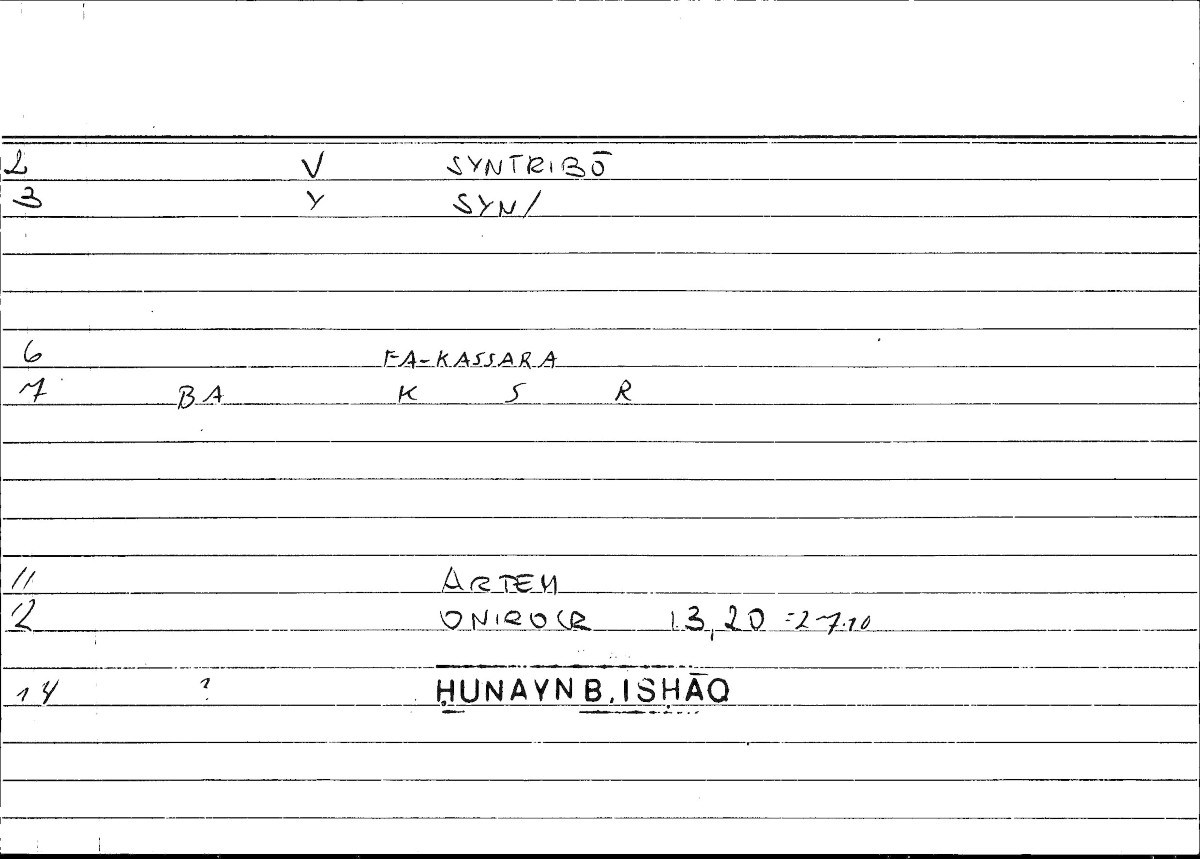 2 V SYNTRIBŌ
3 Y SYN/
6 FA-KASSARA
7 BA K S R
11 ARTEM
12 ONIROCR 13,20 =27.10
14 ? ḤUNAYN B. ISḤĀQ